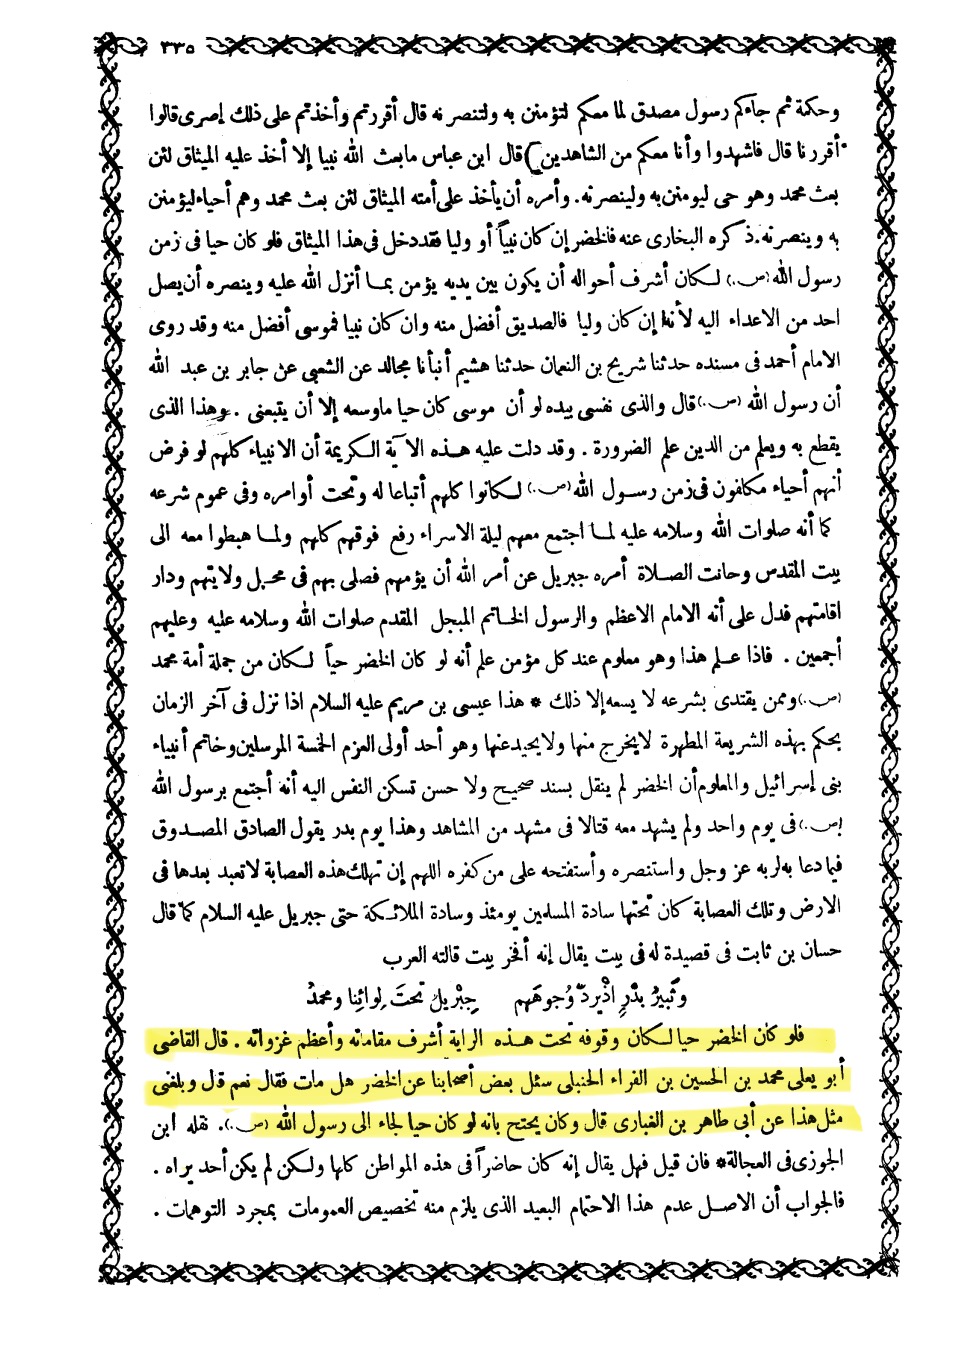 ٣٣٥
وحكمة ثم جاءكم رسول مصدق لما معكم لتؤمنن به ولتنصرنه قال أقررتم وأخذتم على ذلك إصرى قالوا
أقررنا قال فاشهدوا وأنا معكم من الشاهدين) قال ابن عباس مابعث الله نبيا إلا أخذ عليه الميثاق لئن
بعث محمد وهو حى ليومنن به ولينصرنه. وأمره أن يأخذ على أمته الميثاق لئن بعث محمد وهم أحياء ليؤمنن
به وينصرنه. ذكره البخارى عنه فالخضر إن كان نبياً أو وليا فقد دخل فى هذا الميثاق فلو كان حيا فى زمن
رسول الله (ص.) لكان أشرف أحواله أن يكون بين يديه يؤمن بما أنزل الله عليه وينصره أن يصل
احد من الاعداء اليه لأنه إن كان وليا فالصديق أفضل منه وان كان نبيا فموسى أفضل منه وقد روى
الامام أحمد فى مسنده حدثنا شريح بن النعمان حدثنا هشيم أنبأنا مجالد عن الشعبى عن جابر بن عبد الله
أن رسول الله (ص.) قال والذى نفسى بيده لو أن موسى كان حيا ماوسعه إلا أن يتبعنى . وهذا الذى
يقطع به ويعلم من الدين علم الضرورة . وقد دلت عليه هذه الآية الكريمة أن الانبياء كلهم لو فرض
أنهم أحياء مكلفون فى زمن رسول الله (ص.) لكانوا كلهم أتباعا له وتحت أوامره وفى عموم شرعه
كما أنه صلوات الله وسلامه عليه لما اجتمع معهم ليلة الاسراء رفع فوقهم كلهم ولما هبطوا معه الى
بيت المقدس وحانت الصلاة أمره جبريل عن أمر الله أن يؤمهم فصلى بهم فى محل ولايتهم ودار
اقامتهم فدل على أنه الامام الاعظم والرسول الخاتم المبجل المقدم صلوات الله وسلامه عليه وعليهم
أجمعين . فاذا علم هذا وهو معلوم عند كل مؤمن علم أنه لو كان الخضر حياً لكان من جملة أمة محمد
(ص.) وممن يقتدى بشرعه لا يسعه إلا ذلك * هذا عيسى بن مريم عليه السلام اذا نزل فى آخر الزمان
يحكم بهذه الشريعة المطهرة لايخرج منها ولا يحيد عنها وهو أحد أولى العزم الخمسة المرسلين وخاتم أنبياء
بنى إسرائيل والمعلوم أن الخضر لم ينقل بسند صحيح ولا حسن تسكن النفس اليه أنه أجتمع برسول الله
(ص.) فى يوم واحد ولم يشهد معه قتالا فى مشهد من المشاهد وهذا يوم بدر يقول الصادق المصدوق
فيما دعا به لربه عز وجل واستنصره وأستفتحه على من كفره اللهم إن تهلك هذه العصابة لا تعبد بعدها فى
الارض وتلك العصابة كان تحتها سادة المسلمين يومئذ وسادة الملائكة حتى جبريل عليه السلام كما قال
حسان بن ثابت فى قصيدة له فى بيت يقال إنه أفخر بيت قالته العرب
وثبير بدر اذ يرد وجوههم جبريل تحت لوائنا ومحمد
فلو كان الخضر حيا لكان وقوفه تحت هذه الراية أشرف مقاماته وأعظم غزواته . قال القاضى
أبو يعلى محمد بن الحسين بن الفراء الحنبلى سئل بعض أصحابنا عن الخضر هل مات فقال نعم قال وبلغنى
مثل هذا عن أبى طاهر بن الغبارى قال وكان يحتج بانه لو كان حيا لجاء الى رسول الله (ص.). نقله ابن
الجوزى فى العجالة* فان قيل فهل يقال إنه كان حاضراً فى هذه المواطن كلها ولكن لم يكن أحد يراه .
فالجواب أن الاصل عدم هذا الاحتمام البعيد الذى يلزم منه تخصيص العمومات بمجرد التوهمات .